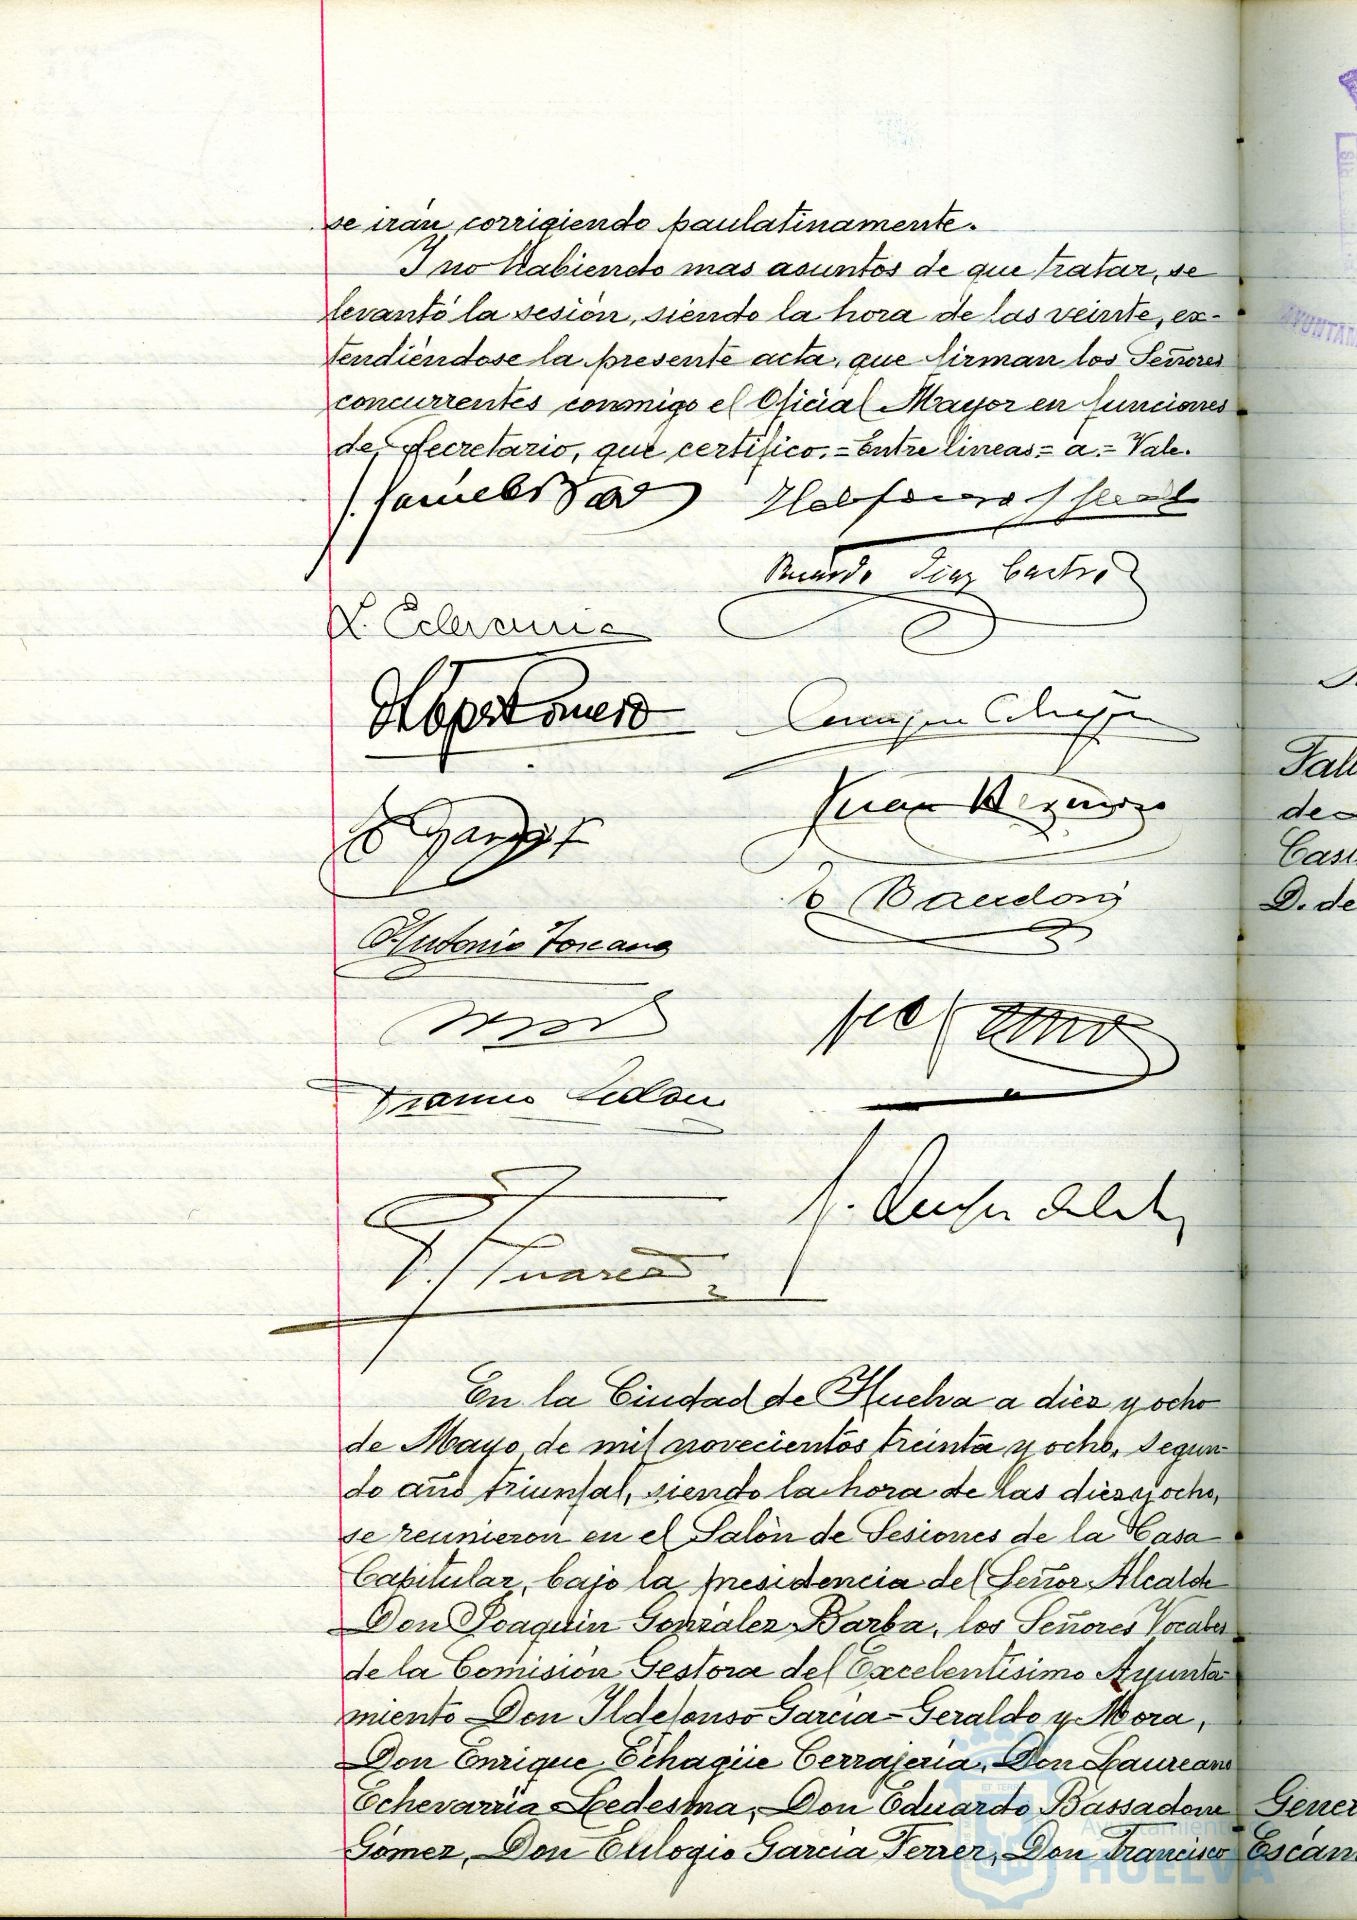 se irán corrigiendo paulatinamente.
Y no habiendo mas asuntos de que tratar, se
levantó la sesión, siendo la hora de las veinte, ex-
tendiéndose la presente acta, que firman los Señores
concurrentes conmigo el Oficial Mayor en funciones
de Secretario, que certifico. = Entre lineas = a. = Vale.
Ricardo Diaz Castro
L. Echevarria
Juan
Antonio Toscano
En la Ciudad de Huelva a diez y ocho
de Mayo de mil novecientos treinta y ocho, segun-
do año triunfal, siendo la hora de las diez y ocho,
se reunieron en el Salón de Sesiones de la Casa
Capitular, bajo la presidencia del Señor Alcalde
Don Joaquin González Barba, los Señores Vocales
de la Comisión Gestora del Excelentísimo Ayunta-
miento Don Ildefonso Garcia-Geraldo y Mora,
Don Enrique Echagüe Cerrajeria, Don Laureano
Echevarria Ledesma, Don Eduardo Bassadone
Gómez, Don Eulogio Garcia Ferrer, Don Francisco
Ayuntamiento
HUELVA